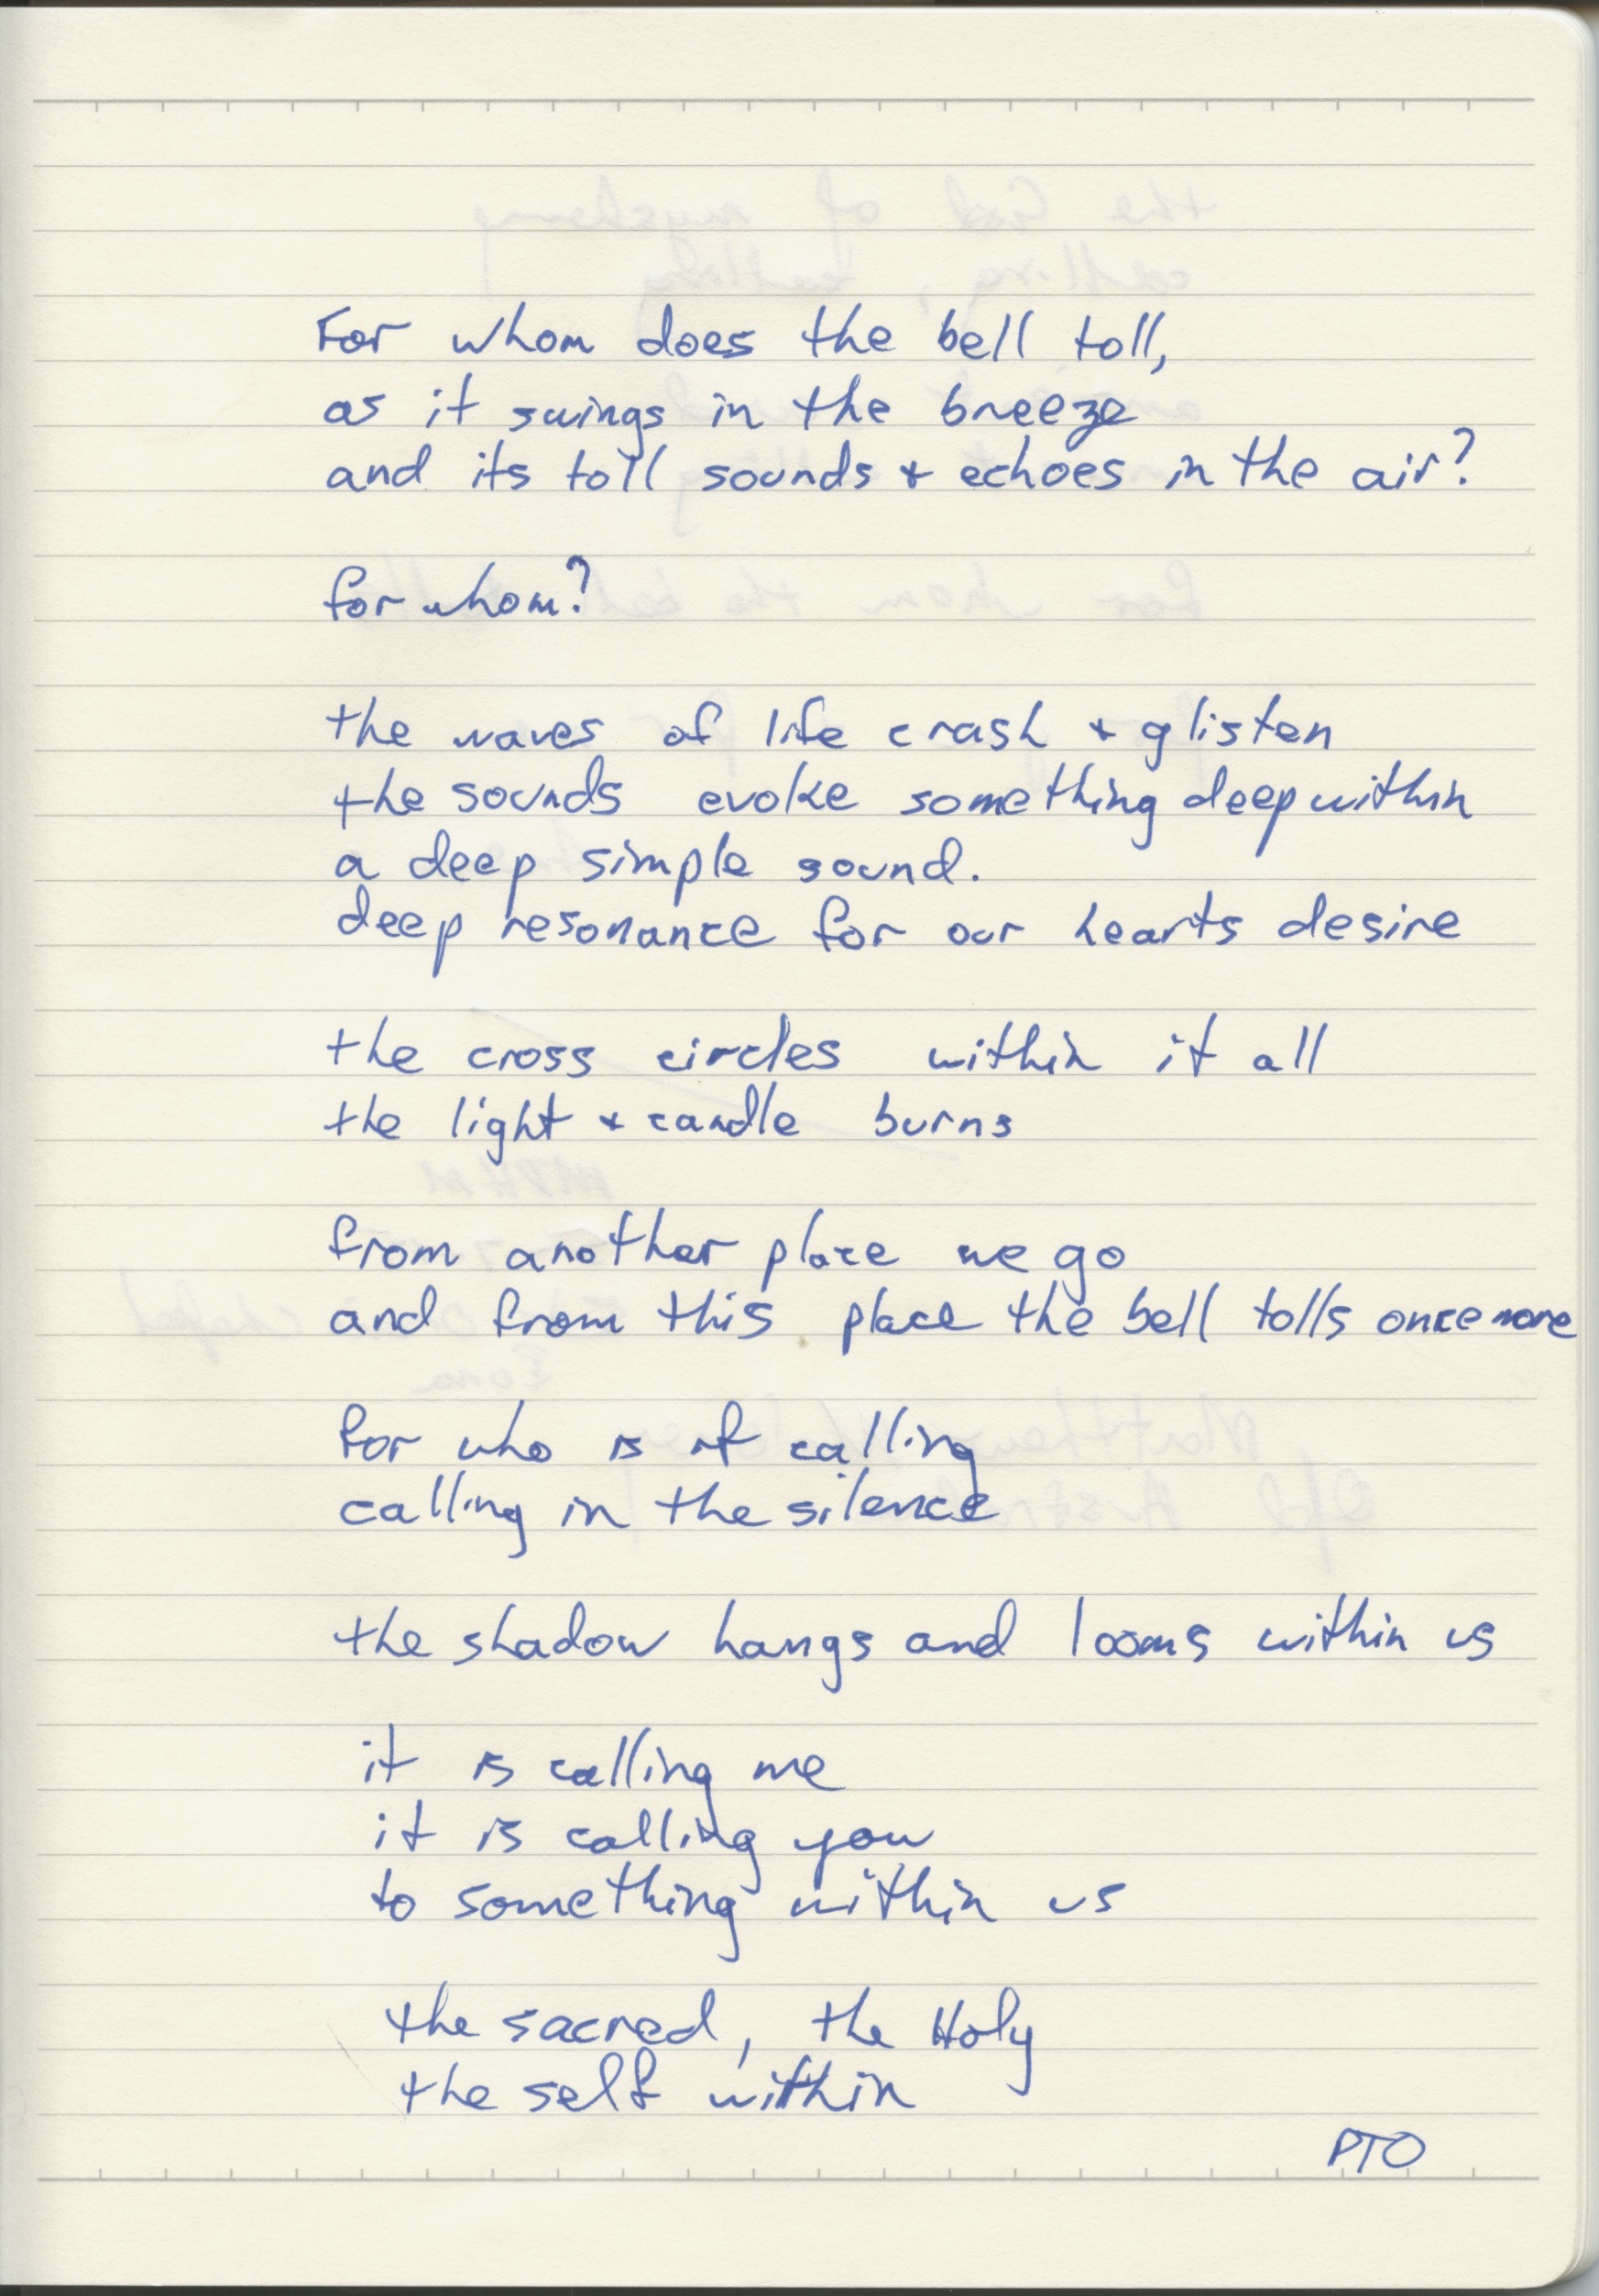 For whom does the bell toll,
as it swings in the breeze
and its toll sounds + echoes in the air?
for whom?
the waves of life crash + glisten
the sounds evoke something deep within
a deep simple sound.
deep resonance for our hearts desire
the cross circles within it all
the light + candle burns
from another place we go
and from this place the bell tolls once more
for who is it calling
calling in the silence
the shadow hangs and looms within us
it is calling me
it is calling you
to something within us
the sacred, the Holy
the self within
PTO